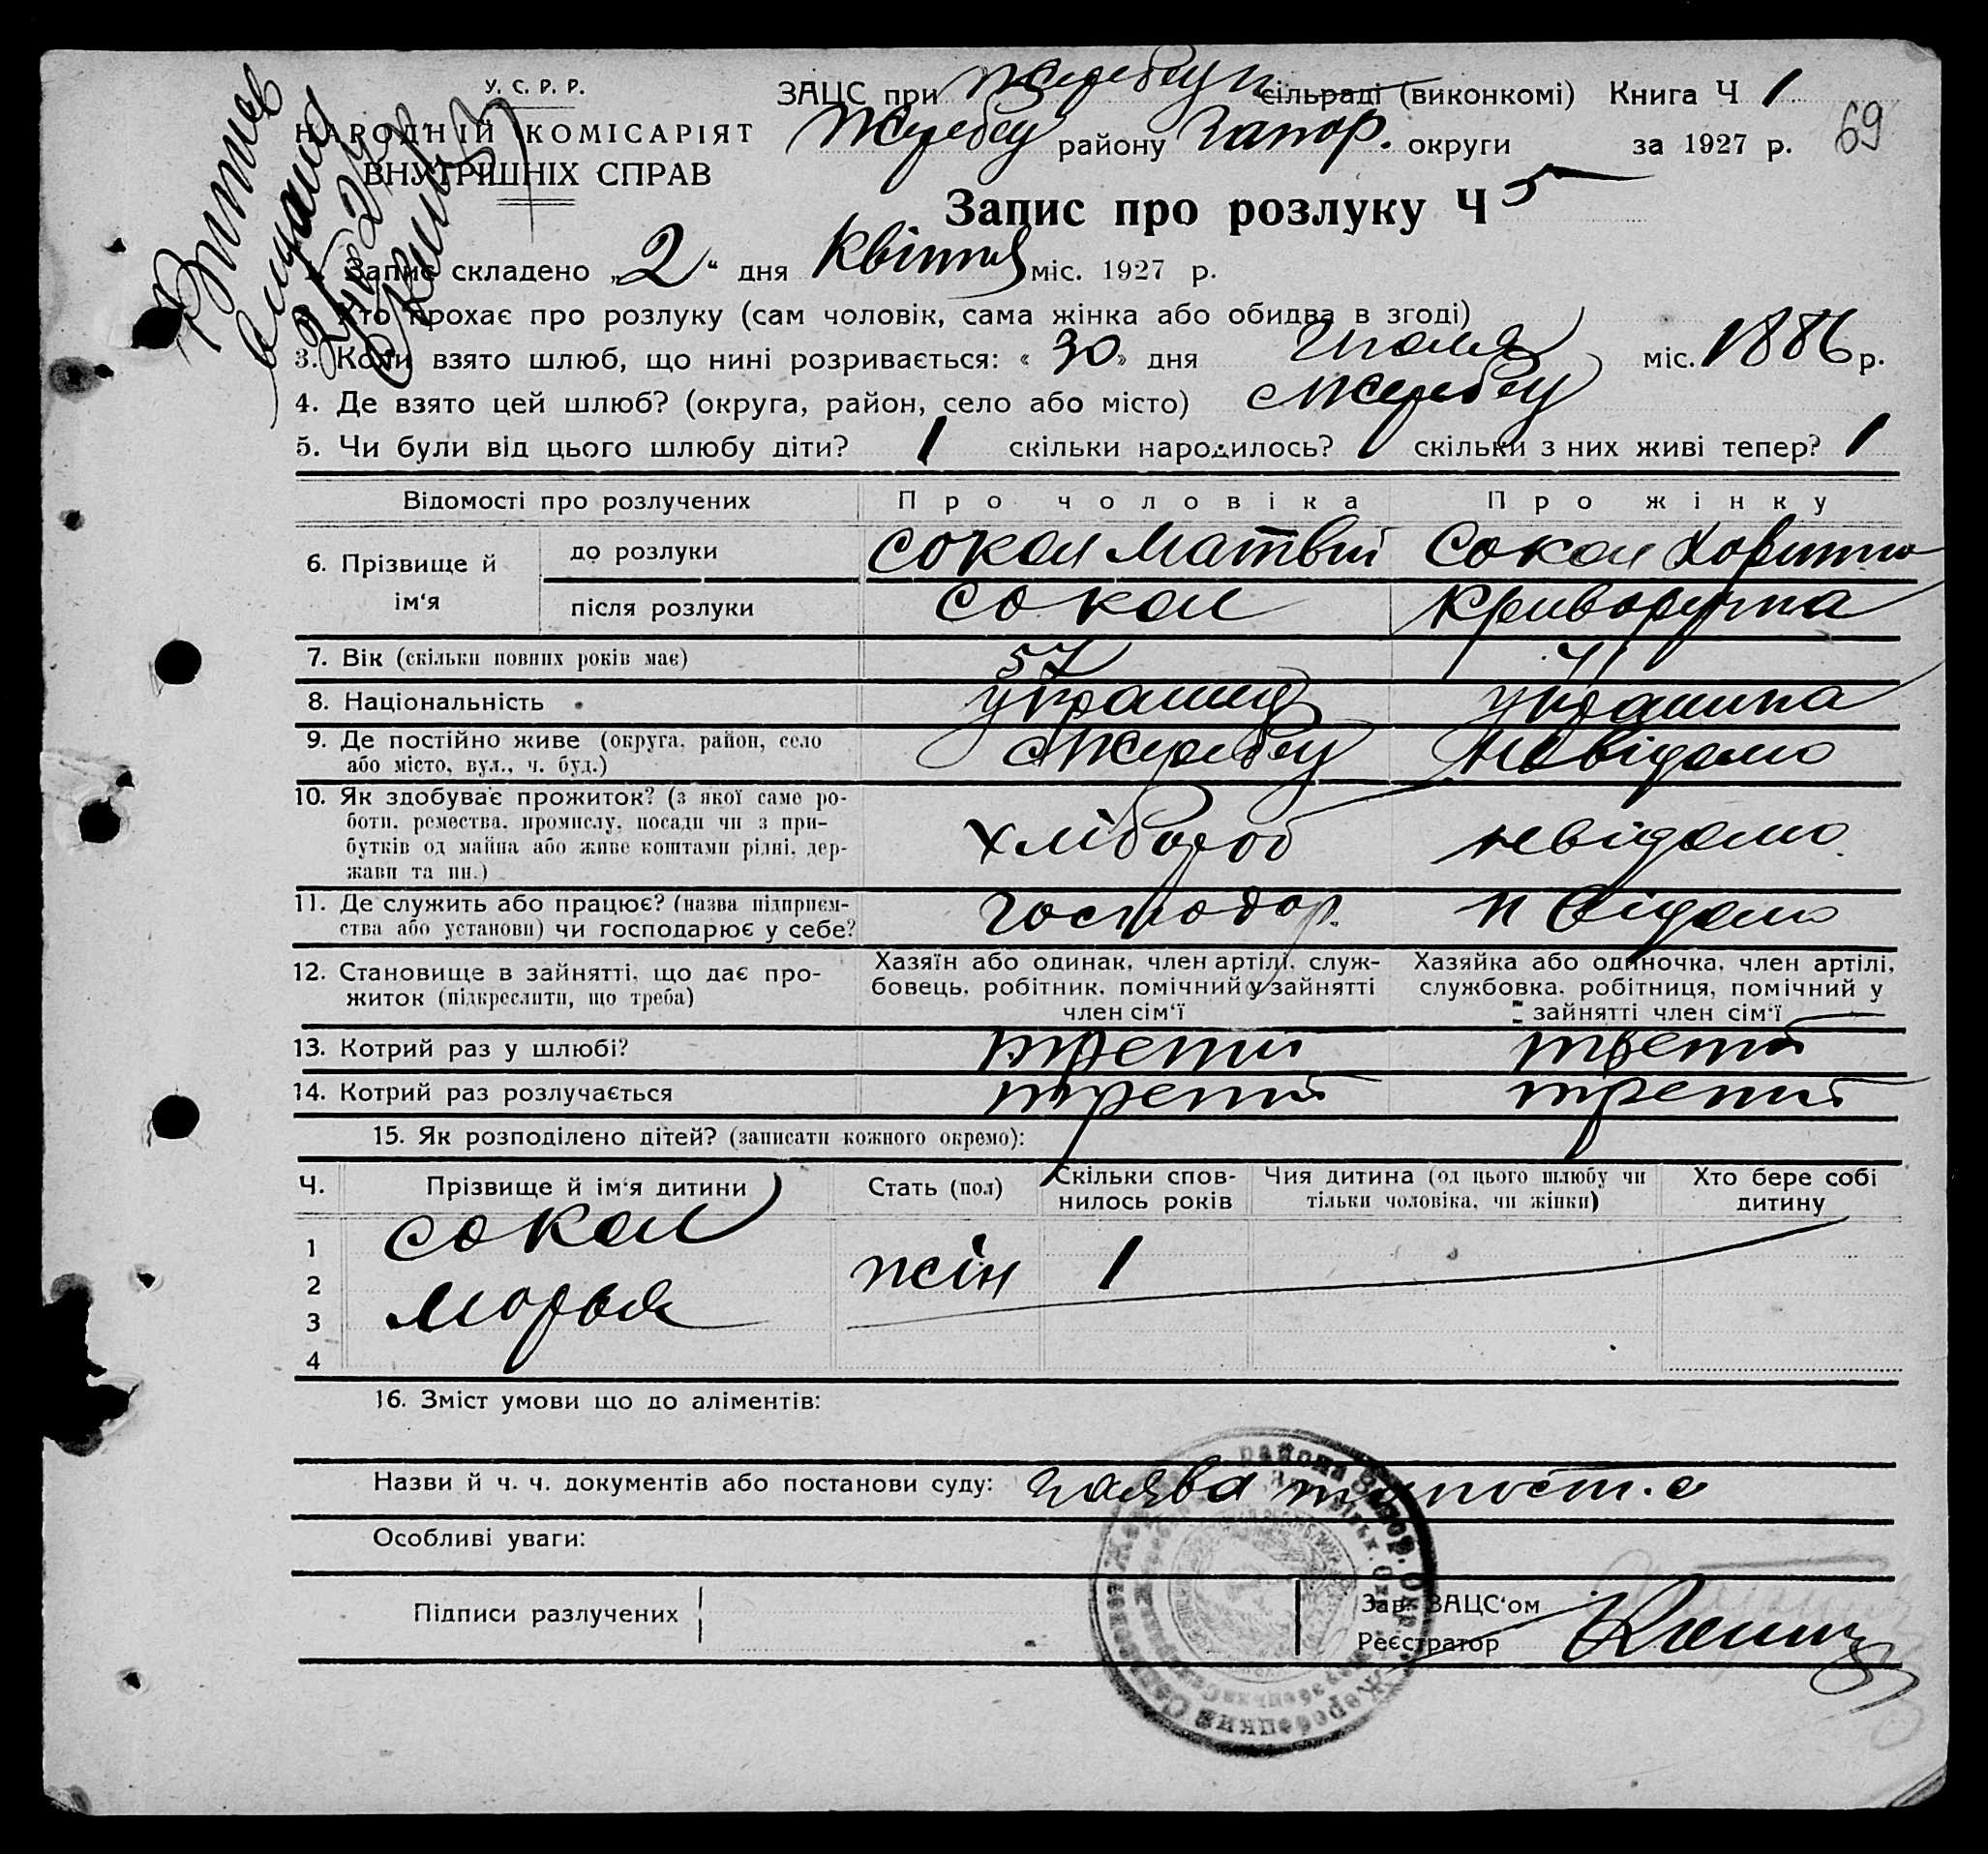 У. С. Р. Р.
НАРОДНІЙ КОМІСАРІЯТ
ВНУТРІШНІХ СПРАВ
ЗАЦС при сільраді (виконкомі) Книга Ч 1
району Запор. округи за 1927 р. 69
Запис про розлуку Ч 5
1. Запис складено „2“ дня Квітня міс. 1927 р.
Хто прохає про розлуку (сам чоловік, сама жінка або обидва в згоді)
3. Коли взято шлюб, що нині розривається: «30» дня міс. 1886 р.
4. Де взято цей шлюб? (округа, район, село або місто)
5. Чи були від цього шлюбу діти? 1 скільки народилось? 1 скільки з них живі тепер? 1
Відомості про розлучених Про чоловіка Про жінку
6. Прізвище й ім‘я до розлуки Сокол Матвій Сокол
після розлуки Сокол Криворучка
7. Вік (скільки повних років має) 57
8. Національність українец українка
9. Де постійно живе (округа, район, село або місто, вул., ч. буд.) невідомо
10. Як здобуває прожиток? (з якої саме ро-
боти, ремества, промислу, посади чи з при-
бутків од майна або живе коштами рідні, дер-
жави та ин.) хлібороб невідомо
11. Де служить або працює? (назва підприєм-
ства або установи) чи господарює у себе? господар. невідомо
12. Становище в зайнятті, що дає про-
житок (підкреслити, що треба)
Хазяїн або одинак, член артілі, служ-
бовець, робітник, помічний у зайнятті
член сім‘ї
Хазяйка або одиночка, член артілі,
службовка, робітниця, помічний у
зайнятті член сім‘ї
13. Котрий раз у шлюбі? третий третий
14. Котрий раз розлучається третий третий
15. Як розподілено дітей? (записати кожного окремо):
Ч. Прізвище й ім‘я дитини Стать (пол) Скільки спов-
нилось років Чия дитина (од цього шлюбу чи
тільки чоловіка, чи жінки) Хто бере собі
дитину
1 Сокол
2 жін 1
3 Марья
4
16. Зміст умови що до аліментів:
Назви й ч. ч. документів або постанови суду: заява
Особливі уваги:
Підписи разлучених
Зав. ЗАЦС‘ом
Реєстратор